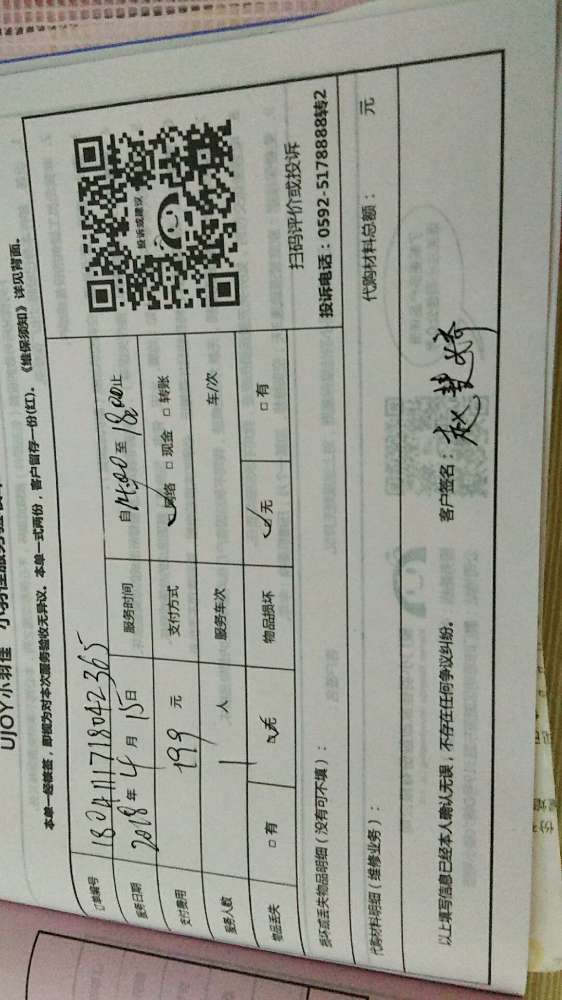 UJOY小羽佳 小羽佳服务验收单
本单一经检签，即视为对本次服务验收无异议。本单一式两份，客户留存一份(红)。《维保须知》详见背面。
订单编号 180411171804236​5
服务日期 2018年4月15日 服务时间 自14:00至18:00止
支付费用 199元 支付方式 ☑网络 □现金 □转账
服务人数 1人 服务车次 车/次
物品丢失 □有 ☑无 物品损坏 ☑无 □有
投诉或建议
扫码评价或投诉
投诉电话：0592-5178888转2
损坏或丢失物品明细（没有可不填）：
代购材料明细（维修业务）： 代购材料总额： 元
以上填写信息已经本人确认无误，不存在任何争议纠纷。 客户签名：赵慧婷